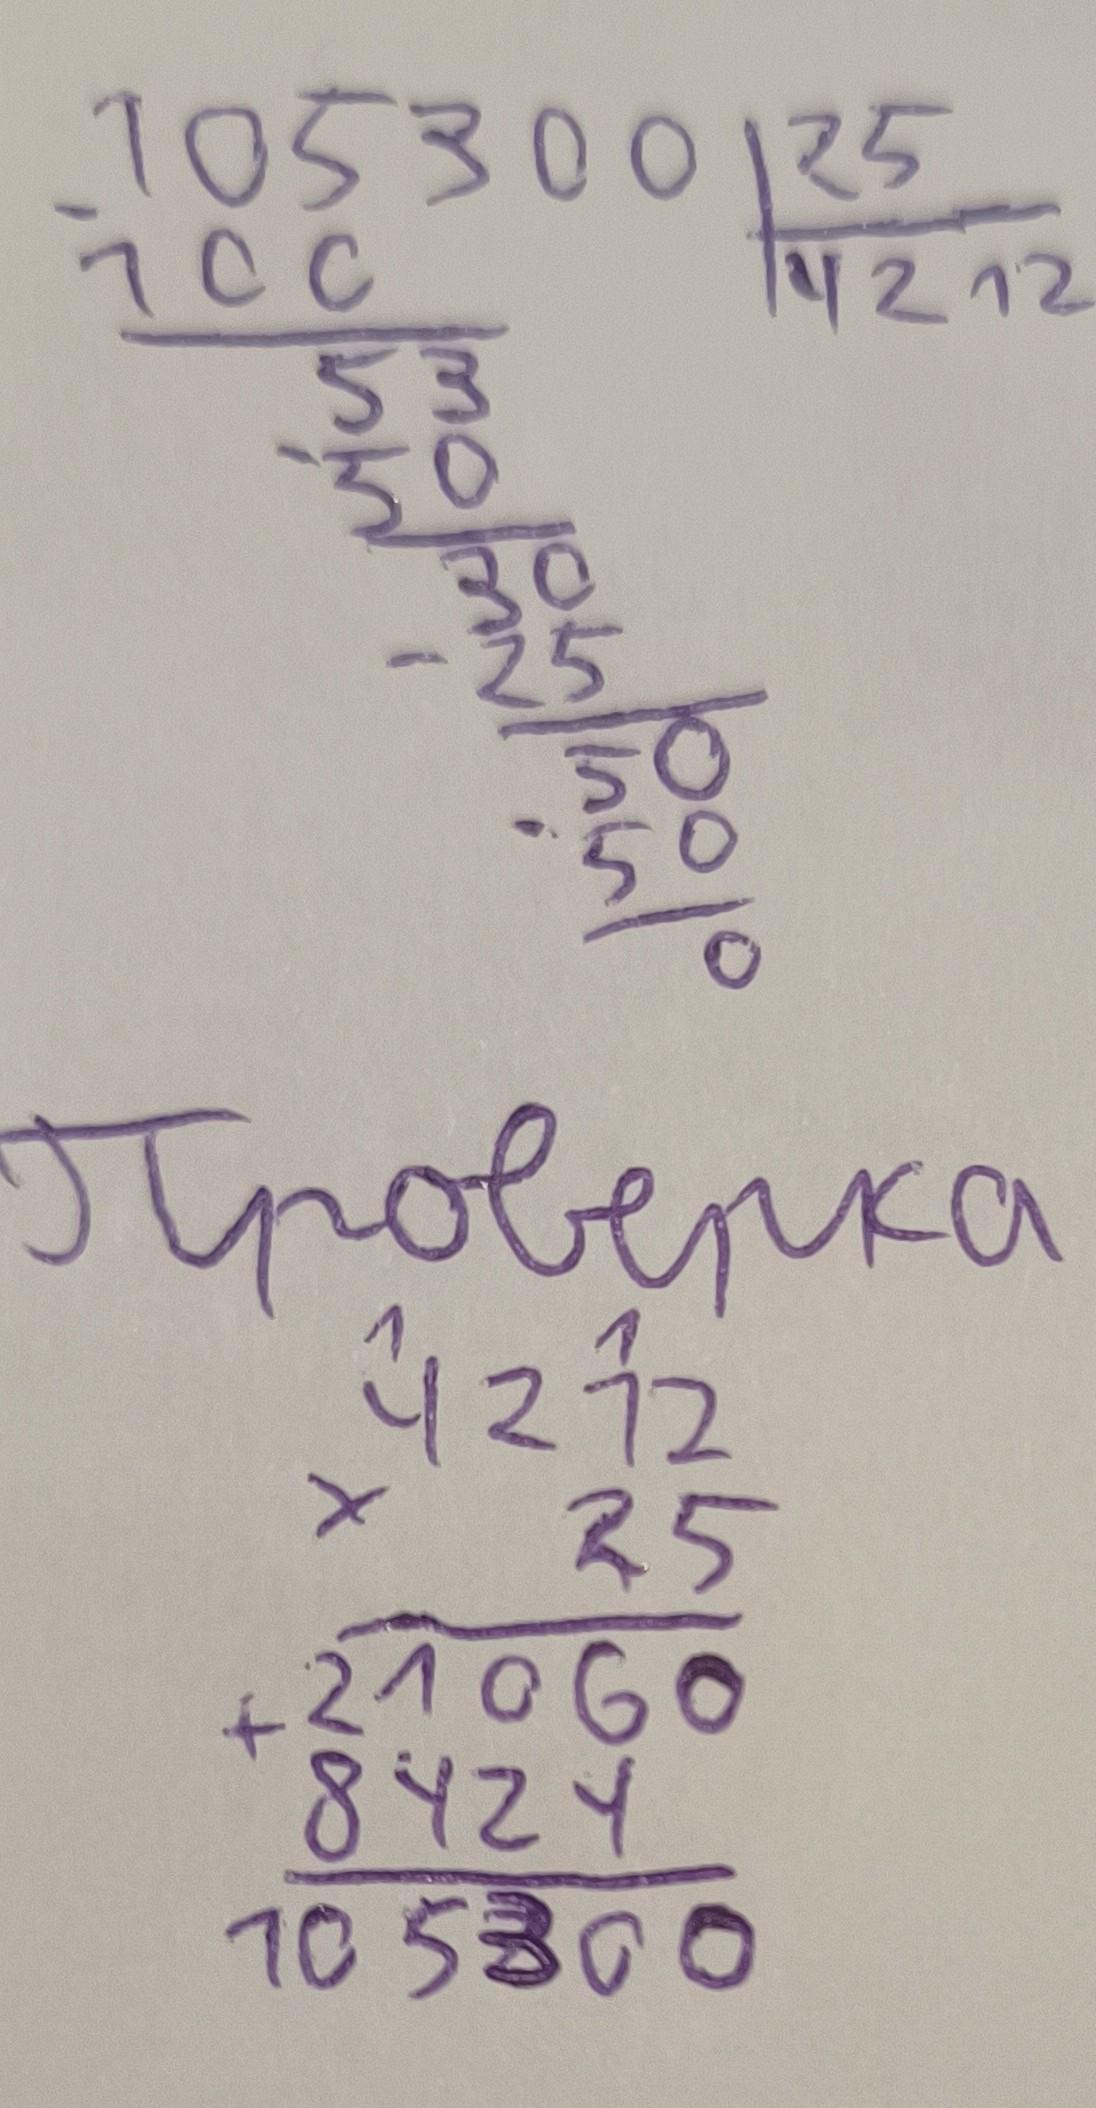 105300 | 25
- 100 | 4212
53
- 50
30
- 25
50
- 50
0
Проверка
1 1
4212
× 25
+ 21060
8424
105300